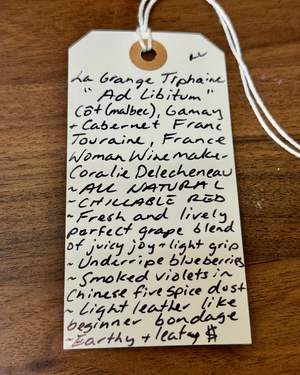 La Grange Tiphaine
"Ad Libitum"
Côt (malbec), Gamay
+ Cabernet Franc
Touraine, France
Woman Winemaker
Coralie Delecheneau
~ ALL NATURAL
~ CHILLABLE RED
~ Fresh and lively
perfect grape blend
of juicy joy + light grip
~ Underripe blueberries
~ Smoked violets in
Chinese five spice dust
~ Light leather like
beginner bondage
~ Earthy + leafy $